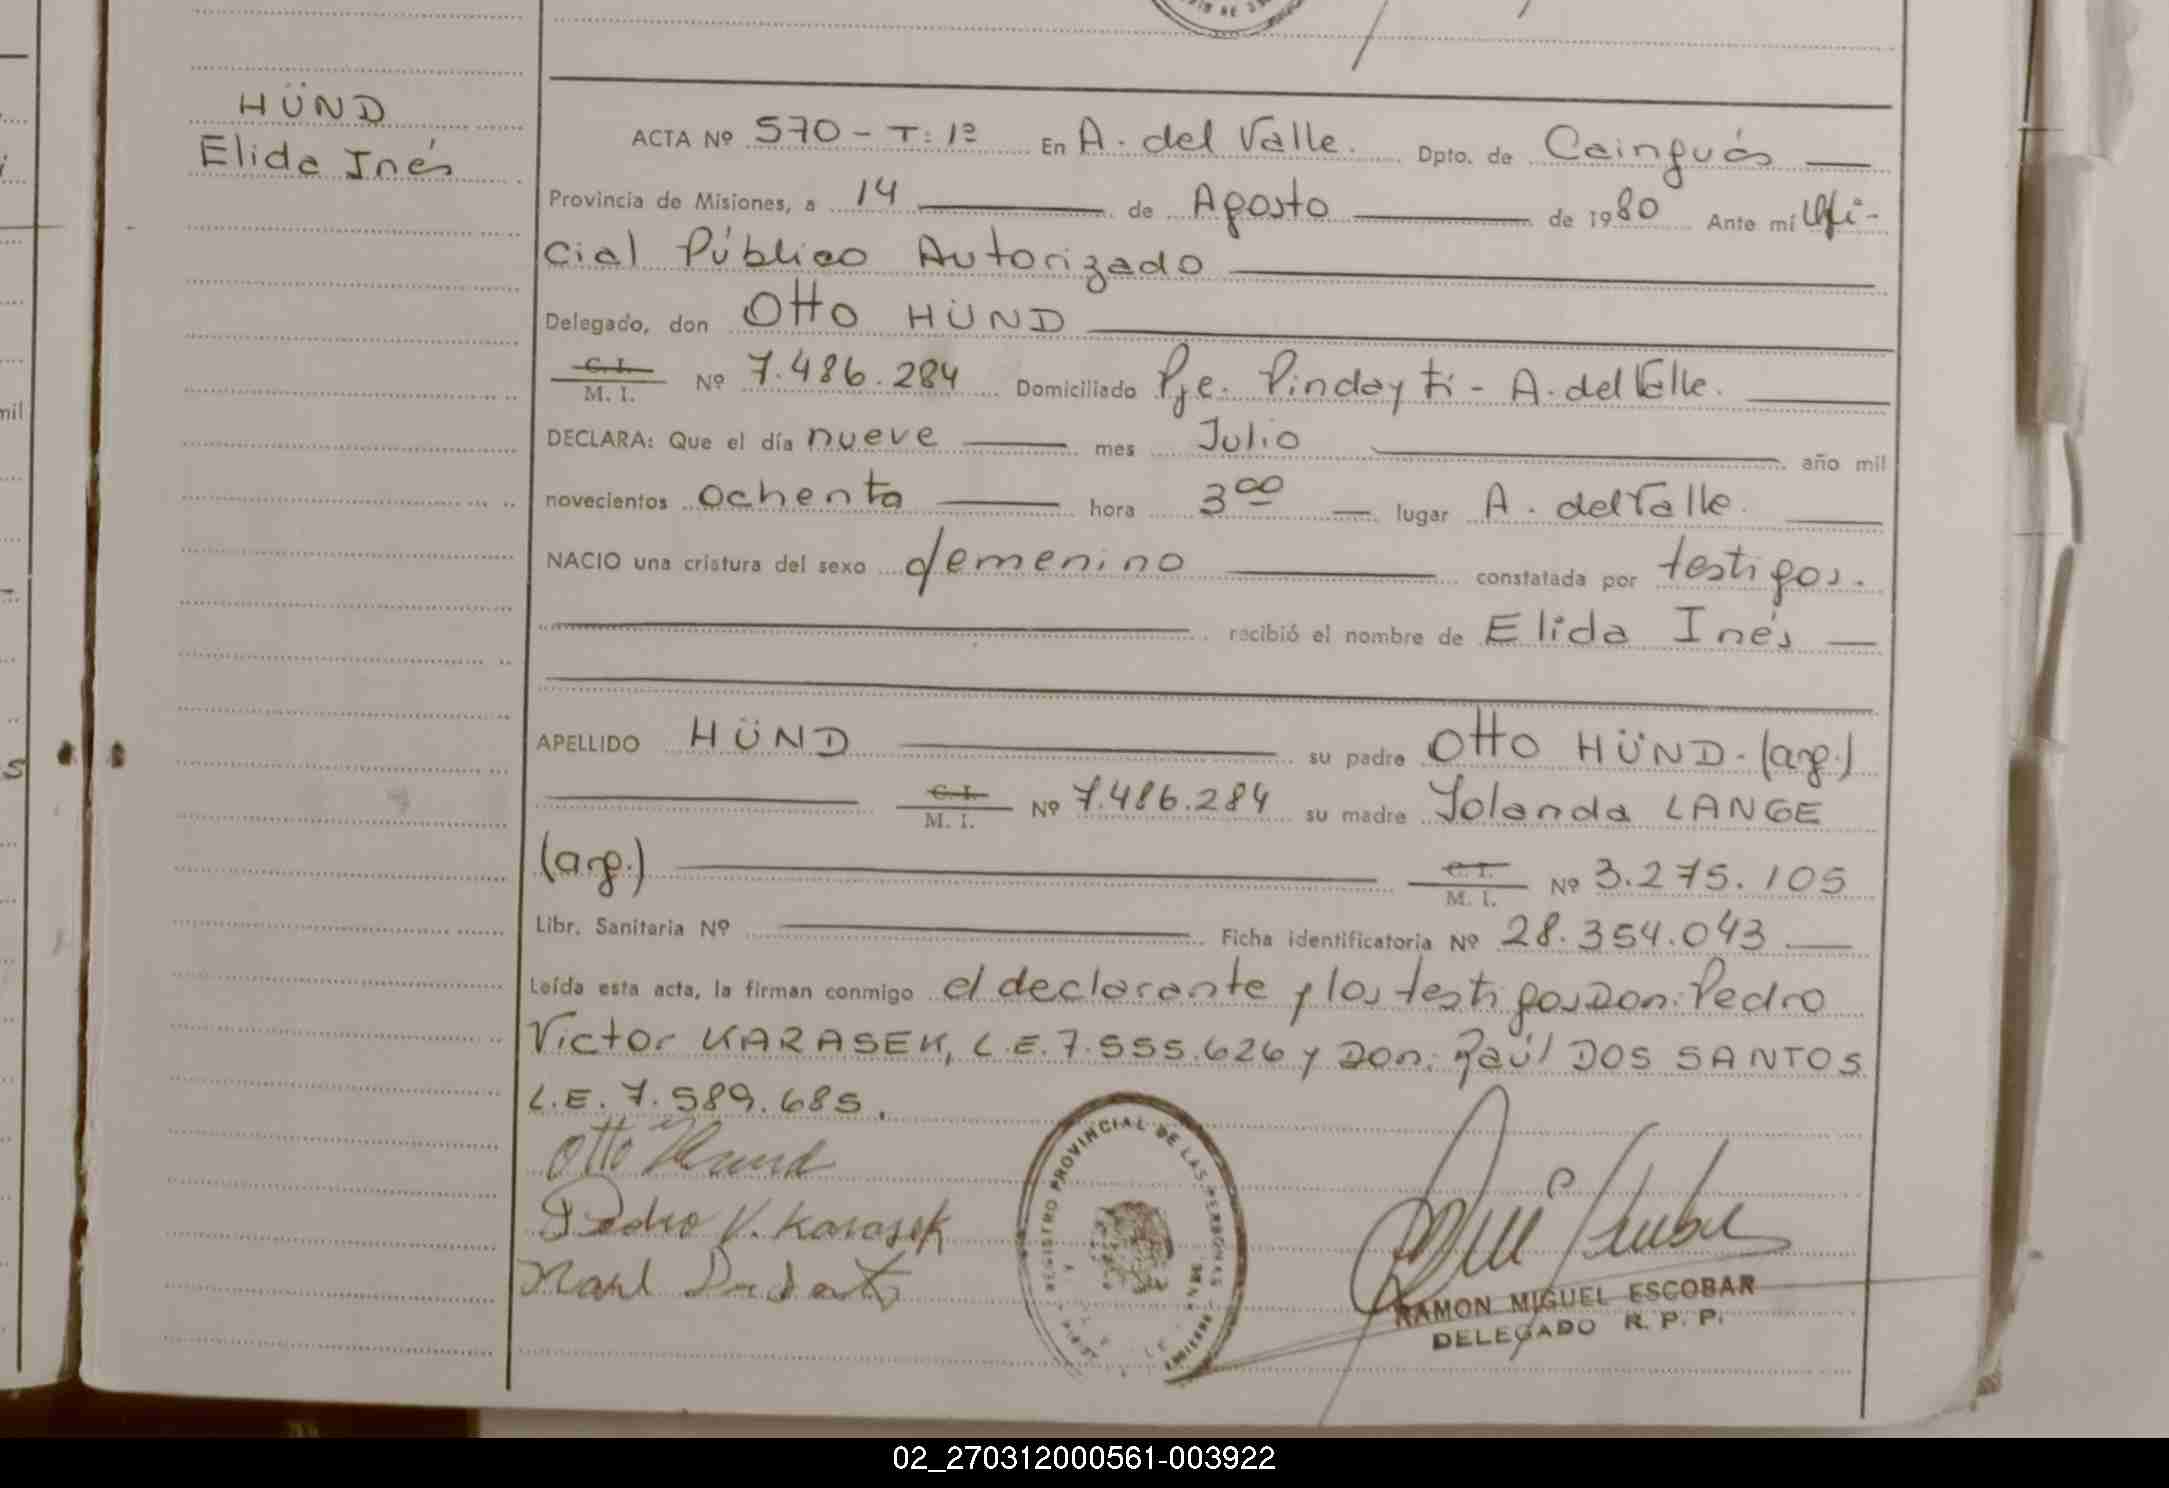 HÜND
Elida Inés
ACTA Nº 570 - T: 1º En A. del Valle. Dpto. de Cainguás
Provincia de Misiones, a 14 de Agosto de 1980 Ante mí Ofi-
cial Público Autorizado
Delegado, don Otto HÜND
C. I.
M. I. Nº 7.486.284 Domiciliado Pje. Pindayti - A. del Valle.
DECLARA: Que el día nueve mes Julio año mil
novecientos ochenta hora 3 00 lugar A. del Valle.
NACIO una criatura del sexo femenino constatada por testigos.
recibió el nombre de Elida Inés
APELLIDO HÜND su padre Otto HÜND - (arg.)
C. I.
M. I. Nº 7.486.284 su madre Yolanda LANGE
(arg.) C. I.
M. I. Nº 3.275.105
Libr. Sanitaria Nº Ficha identificatoria Nº 28.354.043
Leída esta acta, la firman conmigo el declarante y los testigos Don: Pedro
Victor KARASEK, L.E. 7.555.626 y Don: Raúl DOS SANTOS
L.E. 7.589.685.
Otto Hund
Pedro V. Karasek
REGISTRO PROVINCIAL DE LAS PERSONAS
RAMON MIGUEL ESCOBAR
DELEGADO R. P. P.
mil
s
02_270312000561-003922